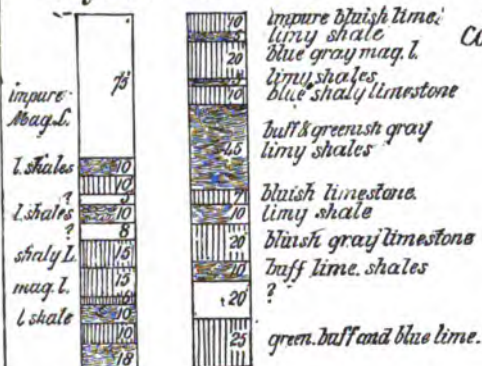 impure
Mag. L.
l. shales
?
l. shales
?
shaly L.
mag. l.
l shale
75
10
10
5
10
8
15
15
10
10
18
10
5
20
10
45
7
10
20
10
20
25
impure bluish lime.
limy shale
blue gray mag. l.
limy shales
blue shaly limestone
buff & greenish gray
limy shales
bluish limestone.
limy shale
bluish gray limestone
buff lime. shales
?
green. buff and blue lime.